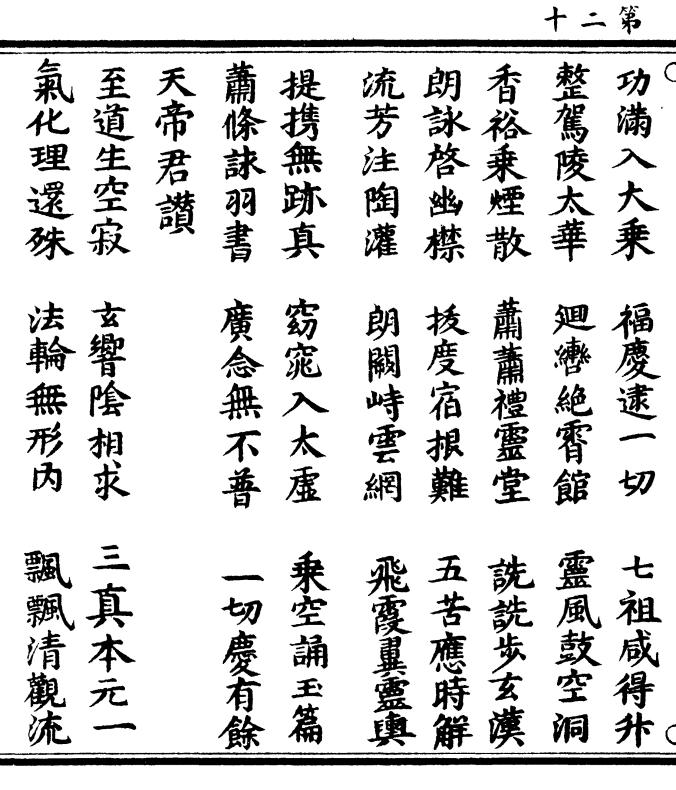 第二十
功滿入大乗　福慶逮一切　七祖咸得升
整駕陵太華　迴轡絶霄館　靈風鼓空洞
香裕乗煙散　蕭蕭禮靈堂　詵詵步玄漢
朗詠啓幽襟　拔度宿根難　五苦應時解
流芳注陶灌　朗闕峙雲網　飛霞翼靈輿
提携無跡真　窈窕入太虛　乗空誦玉篇
蕭條詠羽書　廣念無不普　一切慶有餘
天帝君讃
至道生空寂　玄響陰相求　三真本元一
氣化理還殊　法輪無形内　飄飄清觀流